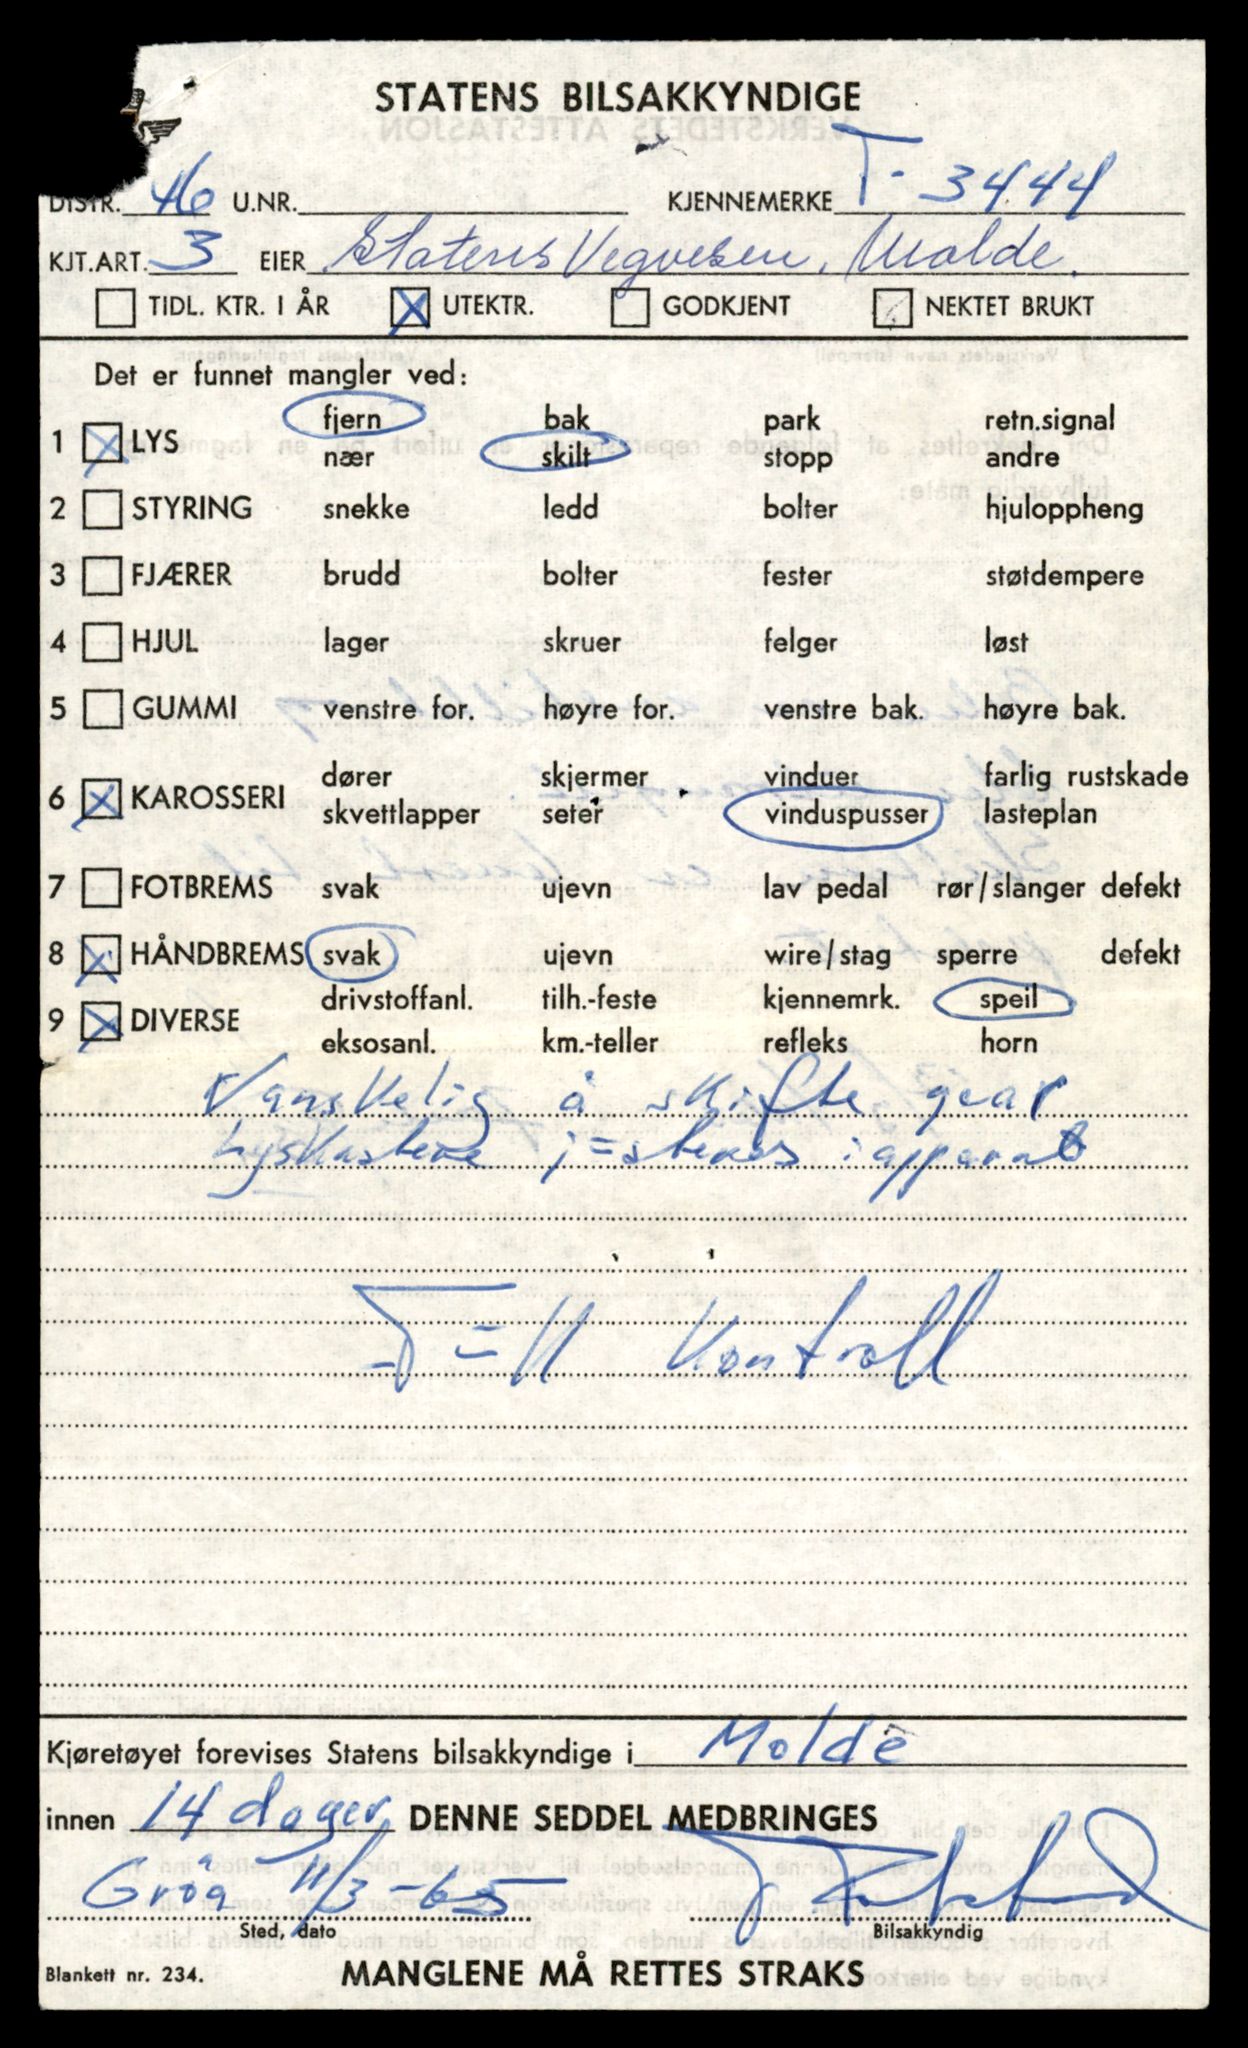 STATENS BILSAKKYNDIGE
DISTR. 46 U.NR. KJENNEMERKE T- 3444
KJT.ART. 3 EIER Statens Vegvesen, Molde.
TIDL. KTR. I ÅR X UTEKTR. GODKJENT NEKTET BRUKT
Det er funnet mangler ved:
fjern bak park retn.signal
1 X LYS
nær skilt stopp andre
2 STYRING snekke ledd bolter hjuloppheng
3 FJÆRER brudd bolter fester støtdempere
4 HJUL lager skruer felger løst
5 GUMMI venstre for. høyre for. venstre bak. høyre bak.
dører skjermer vinduer farlig rustskade
6 X KAROSSERI
skvettlapper seter vinduspusser lasteplan
7 FOTBREMS svak ujevn lav pedal rør/slanger defekt
8 X HÅNDBREMS svak ujevn wire/stag sperre defekt
drivstoffanl. tilh.-feste kjennemrk. speil
9 X DIVERSE
eksosanl. km.-teller refleks horn
Vanskelig å skifte gear
Lyskastere j=steres i apparat
T=ll Kontroll
Kjøretøyet forevises Statens bilsakkyndige i Molde
innen 14 dager DENNE SEDDEL MEDBRINGES
Grøa 11/3-65
Sted, dato Bilsakkyndig
Blankett nr. 234. MANGLENE MÅ RETTES STRAKS